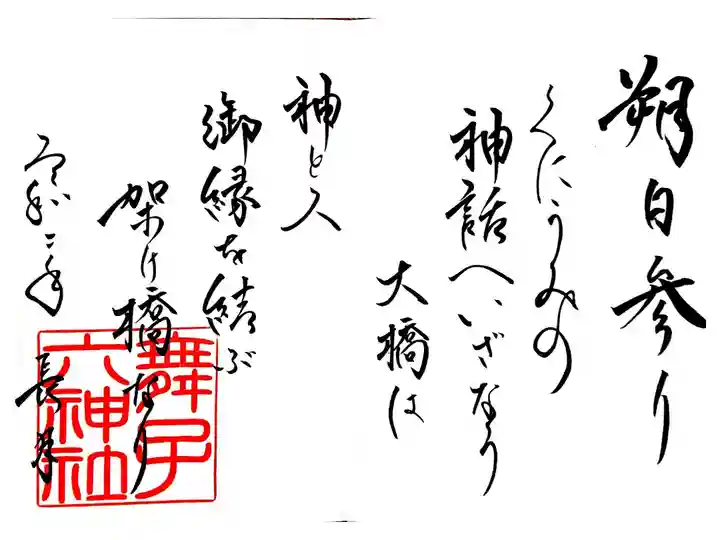 朔日参り
くにうみの
神話へいざなう
大橋は
神と人
御縁を結ぶ
架け橋なり
令和二年 長月
舞子
六神社